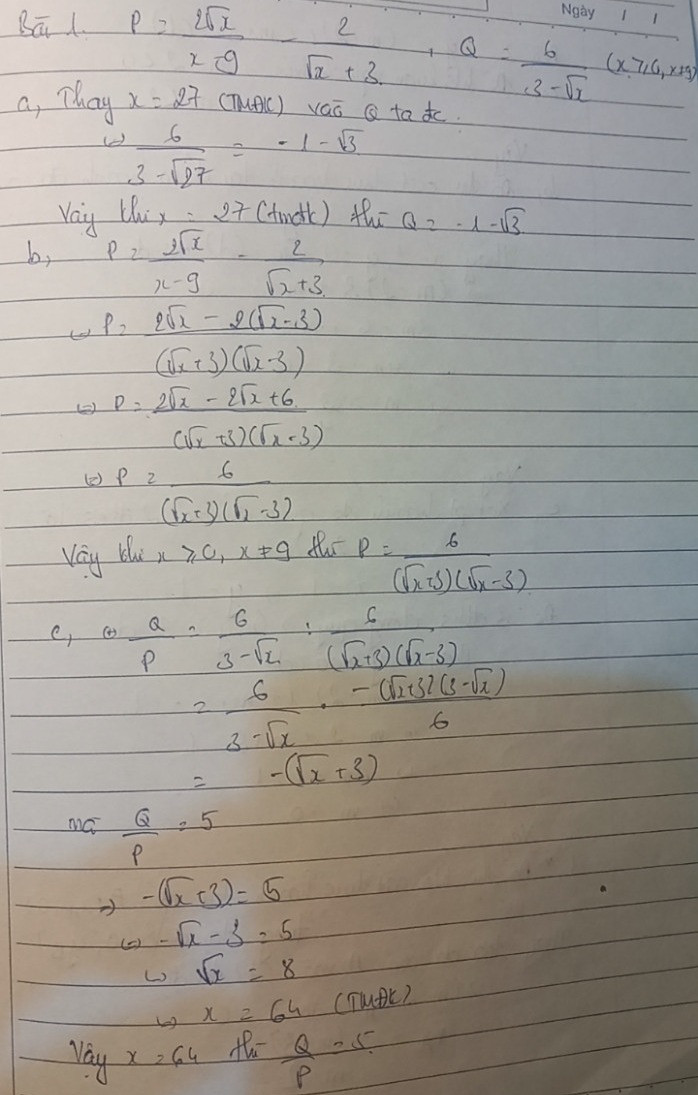 Ngày / /
Bài 1. P = 2√x / x-9 - 2 / √x + 3, Q = 6 / 3-√x (x ≥ 0, x≠9)
a, Thay x = 27 (TMĐK) vào Q ta đc
⇔ 6 / 3-√27 = -1-√3
Vậy khi x = 27 (tmđk) thì Q = -1-√3
b, P = 2√x / x-9 - 2 / √x+3
⇔ P = 2√x - 2(√x-3) / (√x+3)(√x-3)
⇔ P = 2√x - 2√x+6 / (√x+3)(√x-3)
⇔ P = 6 / (√x+3)(√x-3)
Vậy khi x ≥ 0, x ≠ 9 thì P = 6 / (√x+3)(√x-3)
c, ⇔ Q / P = 6 / 3-√x : 6 / (√x+3)(√x-3)
= 6 / 3-√x . -(√x+3)(3-√x) / 6
= -(√x+3)
mà Q / P = 5
⇒ -(√x+3) = 5
⇔ -√x-3 = 5
⇔ √x = 8
⇔ x = 64 (TMĐK)
Vậy x = 64 thì Q / P = 5